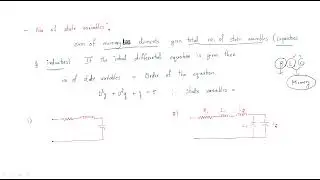 - No. of state variables :
sum of memory elements gives total no. of state variables (capacitors
& inductors) If the total differential equation is given then
no of state variables = Order of the equation
D³y + D²y + y = 5 : state variables =
R L C
Memory
1)
2)